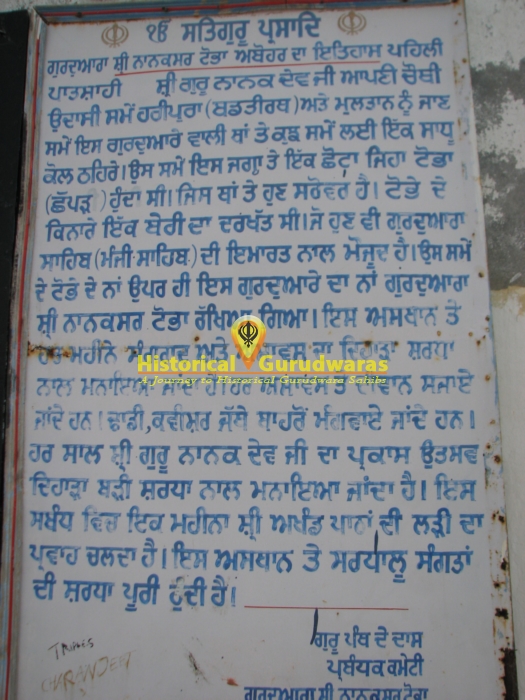 ੴ ਸਤਿਗੁਰੂ ਪ੍ਰਸਾਦਿ
ਗੁਰਦੁਆਰਾ ਸ਼੍ਰੀ ਨਾਨਕਸਰ ਟੋਭਾ ਅਬੋਹਰ ਦਾ ਇਤਿਹਾਸ ਪਹਿਲੀ
ਪਾਤਸ਼ਾਹੀ ਸ਼੍ਰੀ ਗੁਰੂ ਨਾਨਕ ਦੇਵ ਜੀ ਆਪਣੀ ਚੌਥੀ
ਉਦਾਸੀ ਸਮੇਂ ਹਰੀਪੁਰਾ (ਬਡਤੀਰਥ) ਅਤੇ ਮੁਲਤਾਨ ਨੂੰ ਜਾਣ
ਸਮੇਂ ਇਸ ਗੁਰਦੁਆਰੇ ਵਾਲੀ ਥਾਂ ਤੇ ਕੁਛ ਸਮੇਂ ਲਈ ਇੱਕ ਸਾਧੂ
ਕੋਲ ਠਹਿਰੇ। ਉਸ ਸਮੇਂ ਇਸ ਜਗ੍ਹਾ ਤੇ ਇੱਕ ਛੋਟਾ ਜਿਹਾ ਟੋਭਾ
(ਛੱਪੜ) ਹੁੰਦਾ ਸੀ। ਜਿਸ ਥਾਂ ਤੇ ਹੁਣ ਸਰੋਵਰ ਹੈ। ਟੋਭੇ ਦੇ
ਕਿਨਾਰੇ ਇੱਕ ਬੇਰੀ ਦਾ ਦਰੱਖਤ ਸੀ। ਜੋ ਹੁਣ ਵੀ ਗੁਰਦੁਆਰਾ
ਸਾਹਿਬ (ਮੰਜੀ ਸਾਹਿਬ) ਦੀ ਇਮਾਰਤ ਨਾਲ ਮੌਜੂਦ ਹੈ। ਉਸ ਸਮੇਂ
ਦੇ ਟੋਭੇ ਦੇ ਨਾਂ ਉਪਰ ਹੀ ਇਸ ਗੁਰਦੁਆਰੇ ਦਾ ਨਾਂ ਗੁਰਦੁਆਰਾ
ਸ਼੍ਰੀ ਨਾਨਕਸਰ ਟੋਭਾ ਰੱਖਿਆ ਗਿਆ। ਇਸ ਅਸਥਾਨ ਤੇ
ਹਰ ਮਹੀਨੇ ਅਤੇ ਦਾ ਦਿਹਾੜਾ ਸ਼ਰਧਾ
Historical Gurudwaras
A Journey to Historical Gurudwara Sahibs
ਨਾਲ ਮਨਾਇਆ ਜਾਂਦਾ ਤੇ ਦੀਵਾਨ ਸਜਾਏ
ਜਾਂਦੇ ਹਨ। ਢਾਡੀ, ਕਵੀਸ਼ਰ ਜੱਥੇ ਬਾਹਰੋਂ ਮੰਗਵਾਏ ਜਾਂਦੇ ਹਨ।
ਹਰ ਸਾਲ ਸ਼੍ਰੀ ਗੁਰੂ ਨਾਨਕ ਦੇਵ ਜੀ ਦਾ ਪ੍ਰਕਾਸ ਉਤਸਵ
ਦਿਹਾੜਾ ਬੜੀ ਸ਼ਰਧਾ ਨਾਲ ਮਨਾਇਆ ਜਾਂਦਾ ਹੈ। ਇਸ
ਸਬੰਧ ਵਿਚ ਇਕ ਮਹੀਨਾ ਸ਼੍ਰੀ ਅਖੰਡ ਪਾਠਾਂ ਦੀ ਲੜੀ ਦਾ
ਪ੍ਰਵਾਹ ਚਲਦਾ ਹੈ। ਇਸ ਅਸਥਾਨ ਤੇ ਸਰਧਾਲੂ ਸੰਗਤਾਂ
ਦੀ ਸ਼ਰਧਾ ਪੂਰੀ ਹੁੰਦੀ ਹੈ।
ਗੁਰੂ ਪੰਥ ਦੇ ਦਾਸ
ਪ੍ਰਬੰਧਕ ਕਮੇਟੀ
ਗੁਰਦੁਆਰਾ ਸ਼੍ਰੀ ਨਾਨਕਸਰ ਟੋਭਾ